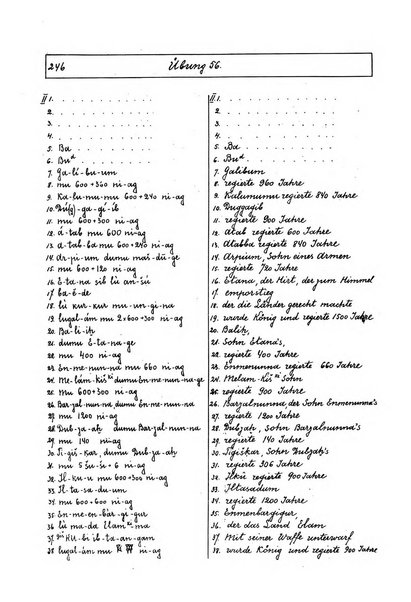 246 Übung 56.
II 1. . . . . . . . . . .
2. . . . . . . . . . .
3. . . . . . . . . . .
4. . . . . . . . . . .
5. Ba
6. Bu
7. Ga-li-bu-um
8. mu 600+360 ni-ag
9. Ka-lu-mu-mu 600+240 ni-ag
10. -ga-gi-ib
11. mu 600+300 ni-ag
12. á-tab mu 600 ni-ag
13. a-tab-ba mu 600+240 ni-ag
14. ar-pi-um dumu maš-dú-ge
15. mu 600+120 ni-ag
16. E-ta-na sib lù an-šú
17. ba-è-dè
18. lù kur-kur mu-un-gi-na
19. lugal-ám mu 2×600+300 ni-ag
20. Ba-li-iḫ
21. dumu E-ta-na-ge
22. mu 400 ni-ag
23. En-me-nun-na mu 660 ni-ag
24. Me-lám-Kiš ki dumu En-me-nun-na-ge
25. mu 600+300 ni-ag
26. Bar-sal-nun-na dumu En-me-nun-na
27. mu 1200 ni-ag
28. Dub-ja-aḫ dumu Bar-sal-nun-na
29. mu 140 ni-ag
30. Ti-giš-kar, dumu Dub-ja-aḫ
31. mu 5 šu-ši+6 ni-ag
32. Il-ku-u mu 600+300 ni-ag
33. Il-ta-sa-du-um
34. mu 600+600 ni-ag
35. En-me-en-bár-gi-gur
36. lù ma-da Elam ki-ma
37. giš KU-bi ib-ta-an-gam
38. lugal-ám mu ni-ag
II 1. . . . . . . . . . .
2. . . . . . . . . . .
3. . . . . . . . . . .
4. . . . . . . . . . .
5. Ba
6. Bu
7. Galibum
8. regierte 960 Jahre
9. Kalumumu regierte 840 Jahre
10. Duggagib
11. regierte 900 Jahre
12. Atab regierte 600 Jahre
13. Atabba regierte 840 Jahre
14. Arpium, Sohn eines Armen
15. regierte 720 Jahre
16. Etana, der Hirt, der zum Himmel
17. emporstieg
18. der die Länder gerecht machte
19. wurde König und regierte 1500 Jahre
20. Baliḫ,
21. Sohn Etana's,
22. regierte 400 Jahre
23. Enmenunna regierte 660 Jahre
24. Melam-Kiš ki Sohn
25. regierte 900 Jahre
26. Barsalnunna der Sohn Enmenunna's
27. regierte 1200 Jahre
28. Dubjaḫ, Sohn Barsalnunna's
29. regierte 140 Jahre
30. Tigiškar, Sohn Dubjaḫ's
31. regierte 306 Jahre
32. Ilkū regierte 900 Jahre
33. Iltasadum
34. regierte 1200 Jahre
35. Enmenbargigur
36. der das Land Elam
37. Mit seiner Waffe unterwarf
38. wurde König und regierte 900 Jahre